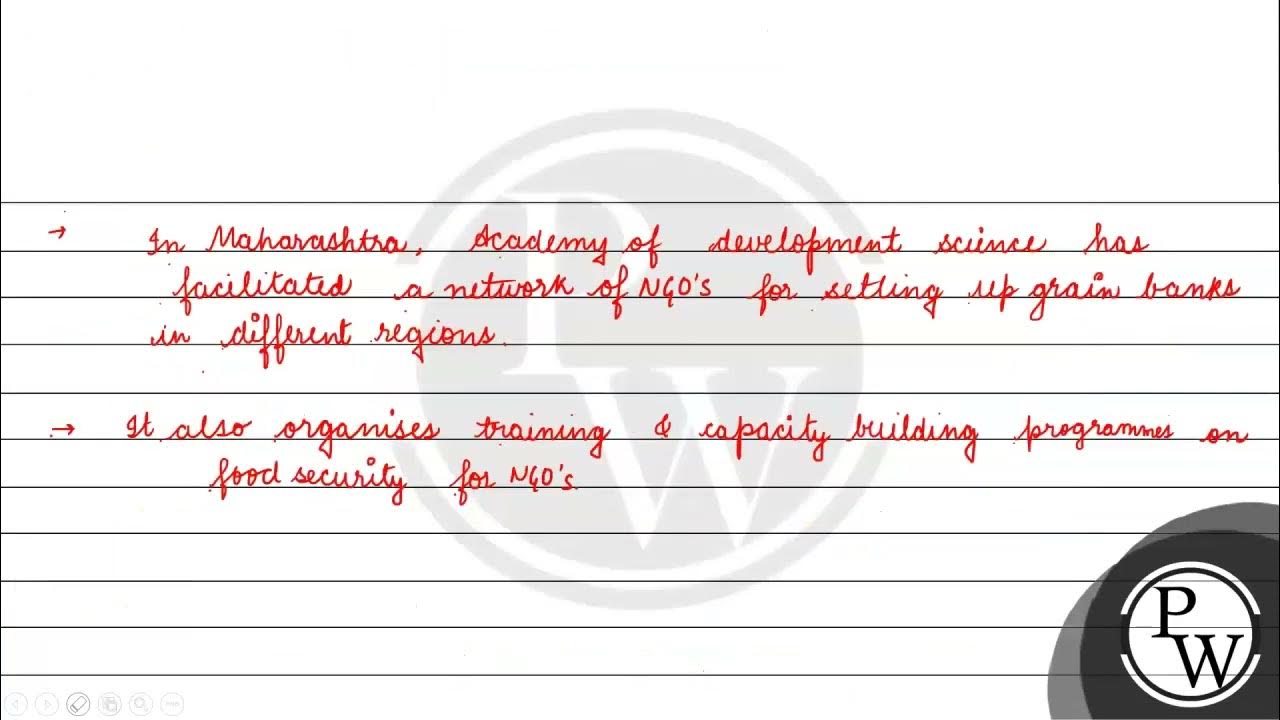 → In Maharashtra, Academy of development science has
facilitated a network of NGO's for setting up grain banks
in different regions.
→ It also organises training & capacity building programmes on
food security for NGO's.
PW
PW